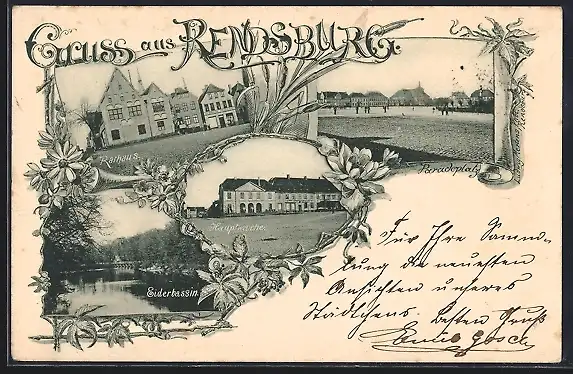 Gruss aus Rendsburg.
Rathaus.
Paradeplatz
Hauptwache.
Eiderbassin.
Für Ihre Samm-
lung die neuesten
Ansichten unseres
Städtchens. Besten Gruß